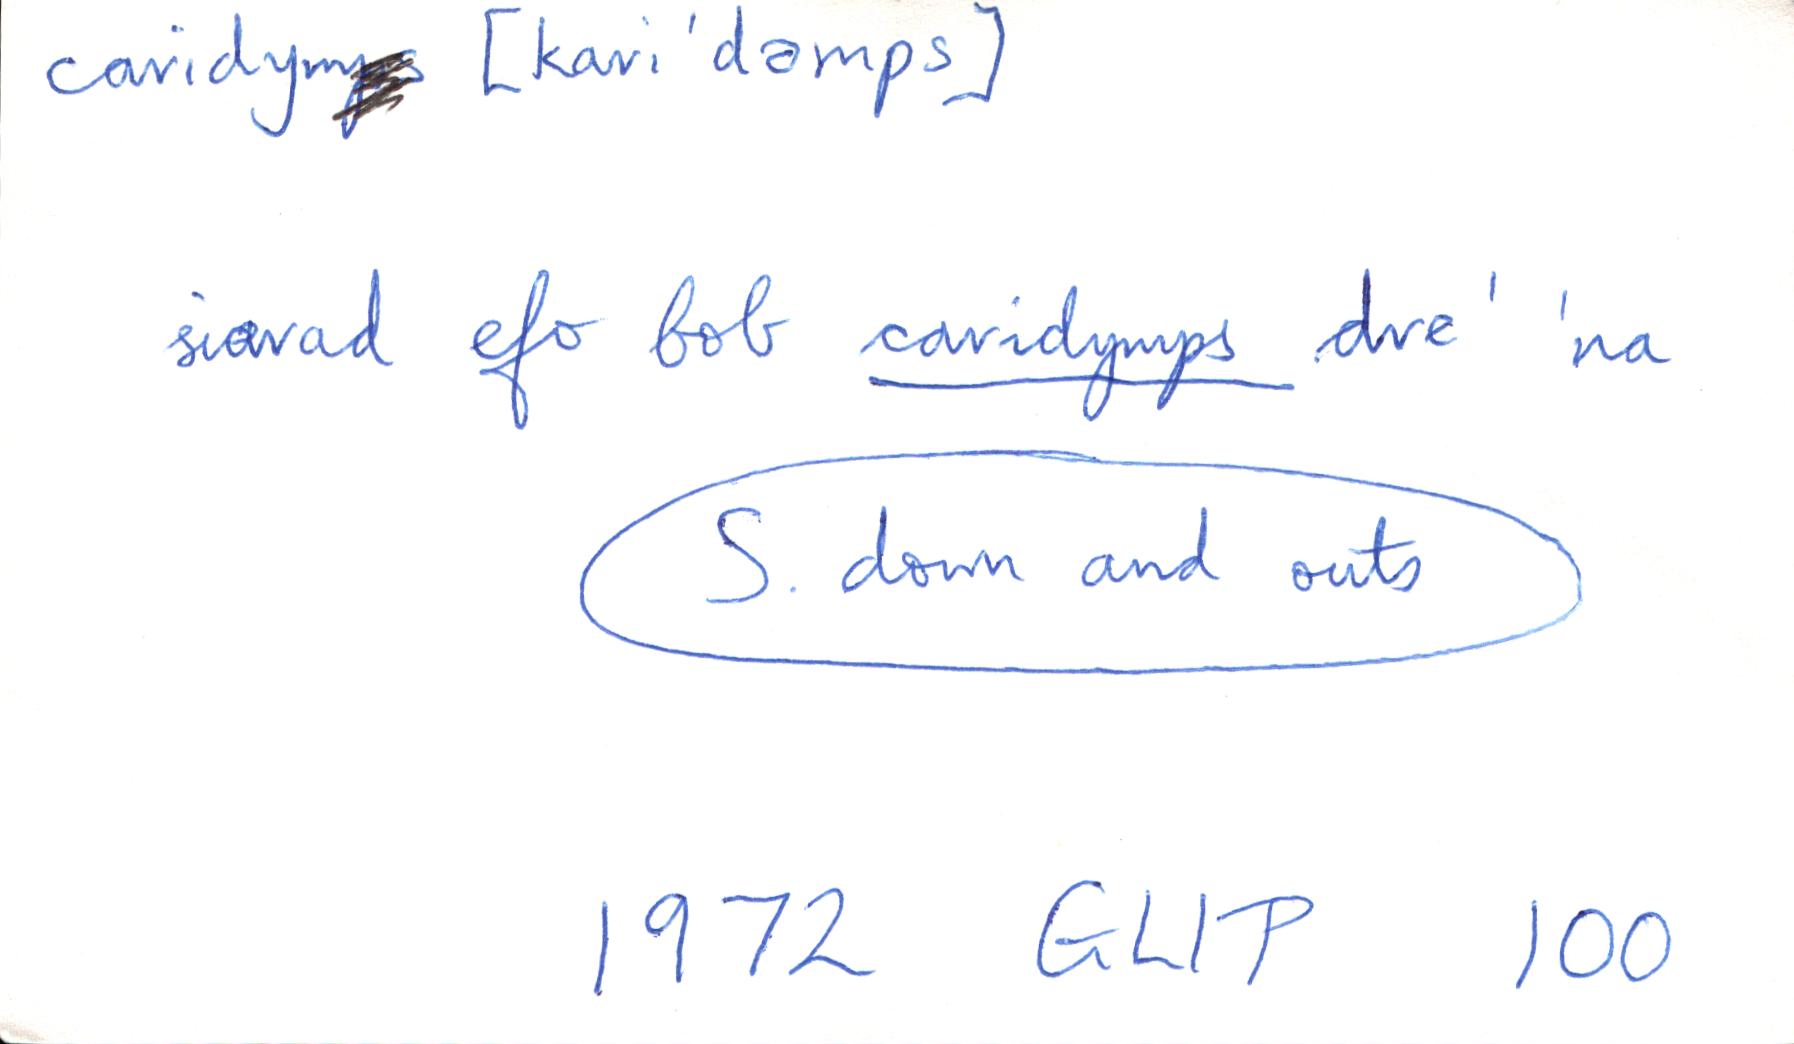 caridymps [kari'dəmps]
siarad efo bob caridymps dre' 'na
S. down and outs
1972 GLIP 100